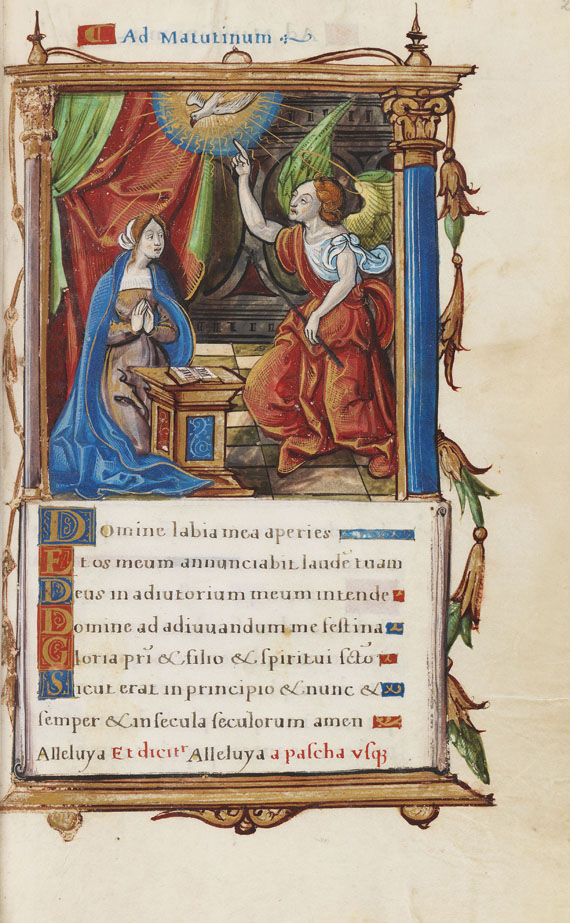 Ad Matutinum
Domine labia mea aperies
Et os meum annunciabit laudē tuam
Deus in adiutorium meum intende
Domine ad adiuuandum me festina
Gloria pr̄i & filio & spiritui sc̄to
Sicut erat in principio & nunc &
semper & in secula seculorum amen
Alleluya Et dicitr Alleluya a pascha vsqꝫ